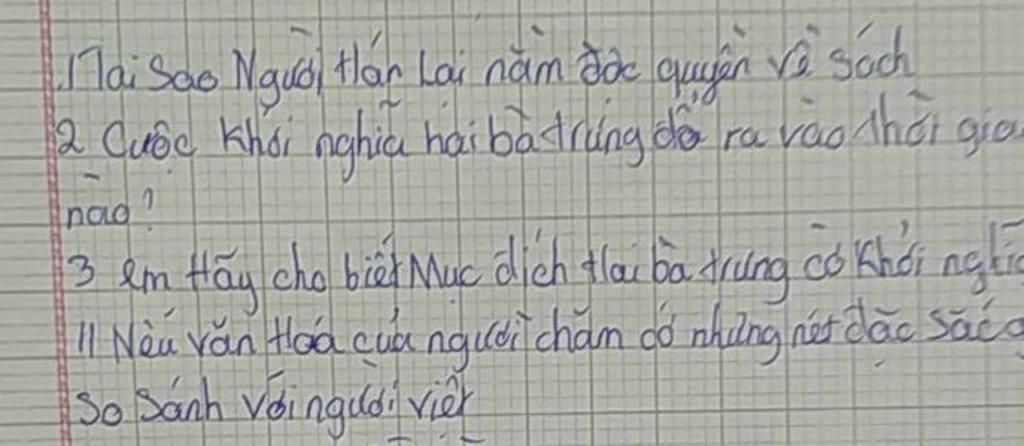 1 Tại Sao Người Hán Lại nắm độc quyền về sách
2 Cuộc khởi nghĩa hai bà trưng đỗ ra vào thời gia
nào?
3 em Hãy cho biết Mục đích Hai bà trưng có Khởi nghĩ
11 Nêu văn Hoá của người chăm có những nét đặc sắc
So Sánh với người việt